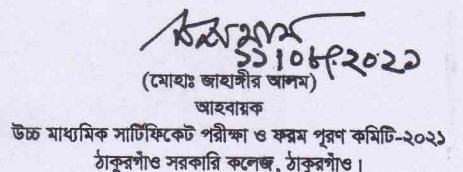 ১১।০৮.২০২১
(মোহাঃ জাহাঙ্গীর আলম)
আহবায়ক
উচ্চ মাধ্যমিক সার্টিফিকেট পরীক্ষা ও ফরম পূরণ কমিটি-২০২১
ঠাকুরগাঁও সরকারি কলেজ, ঠাকুরগাঁও।